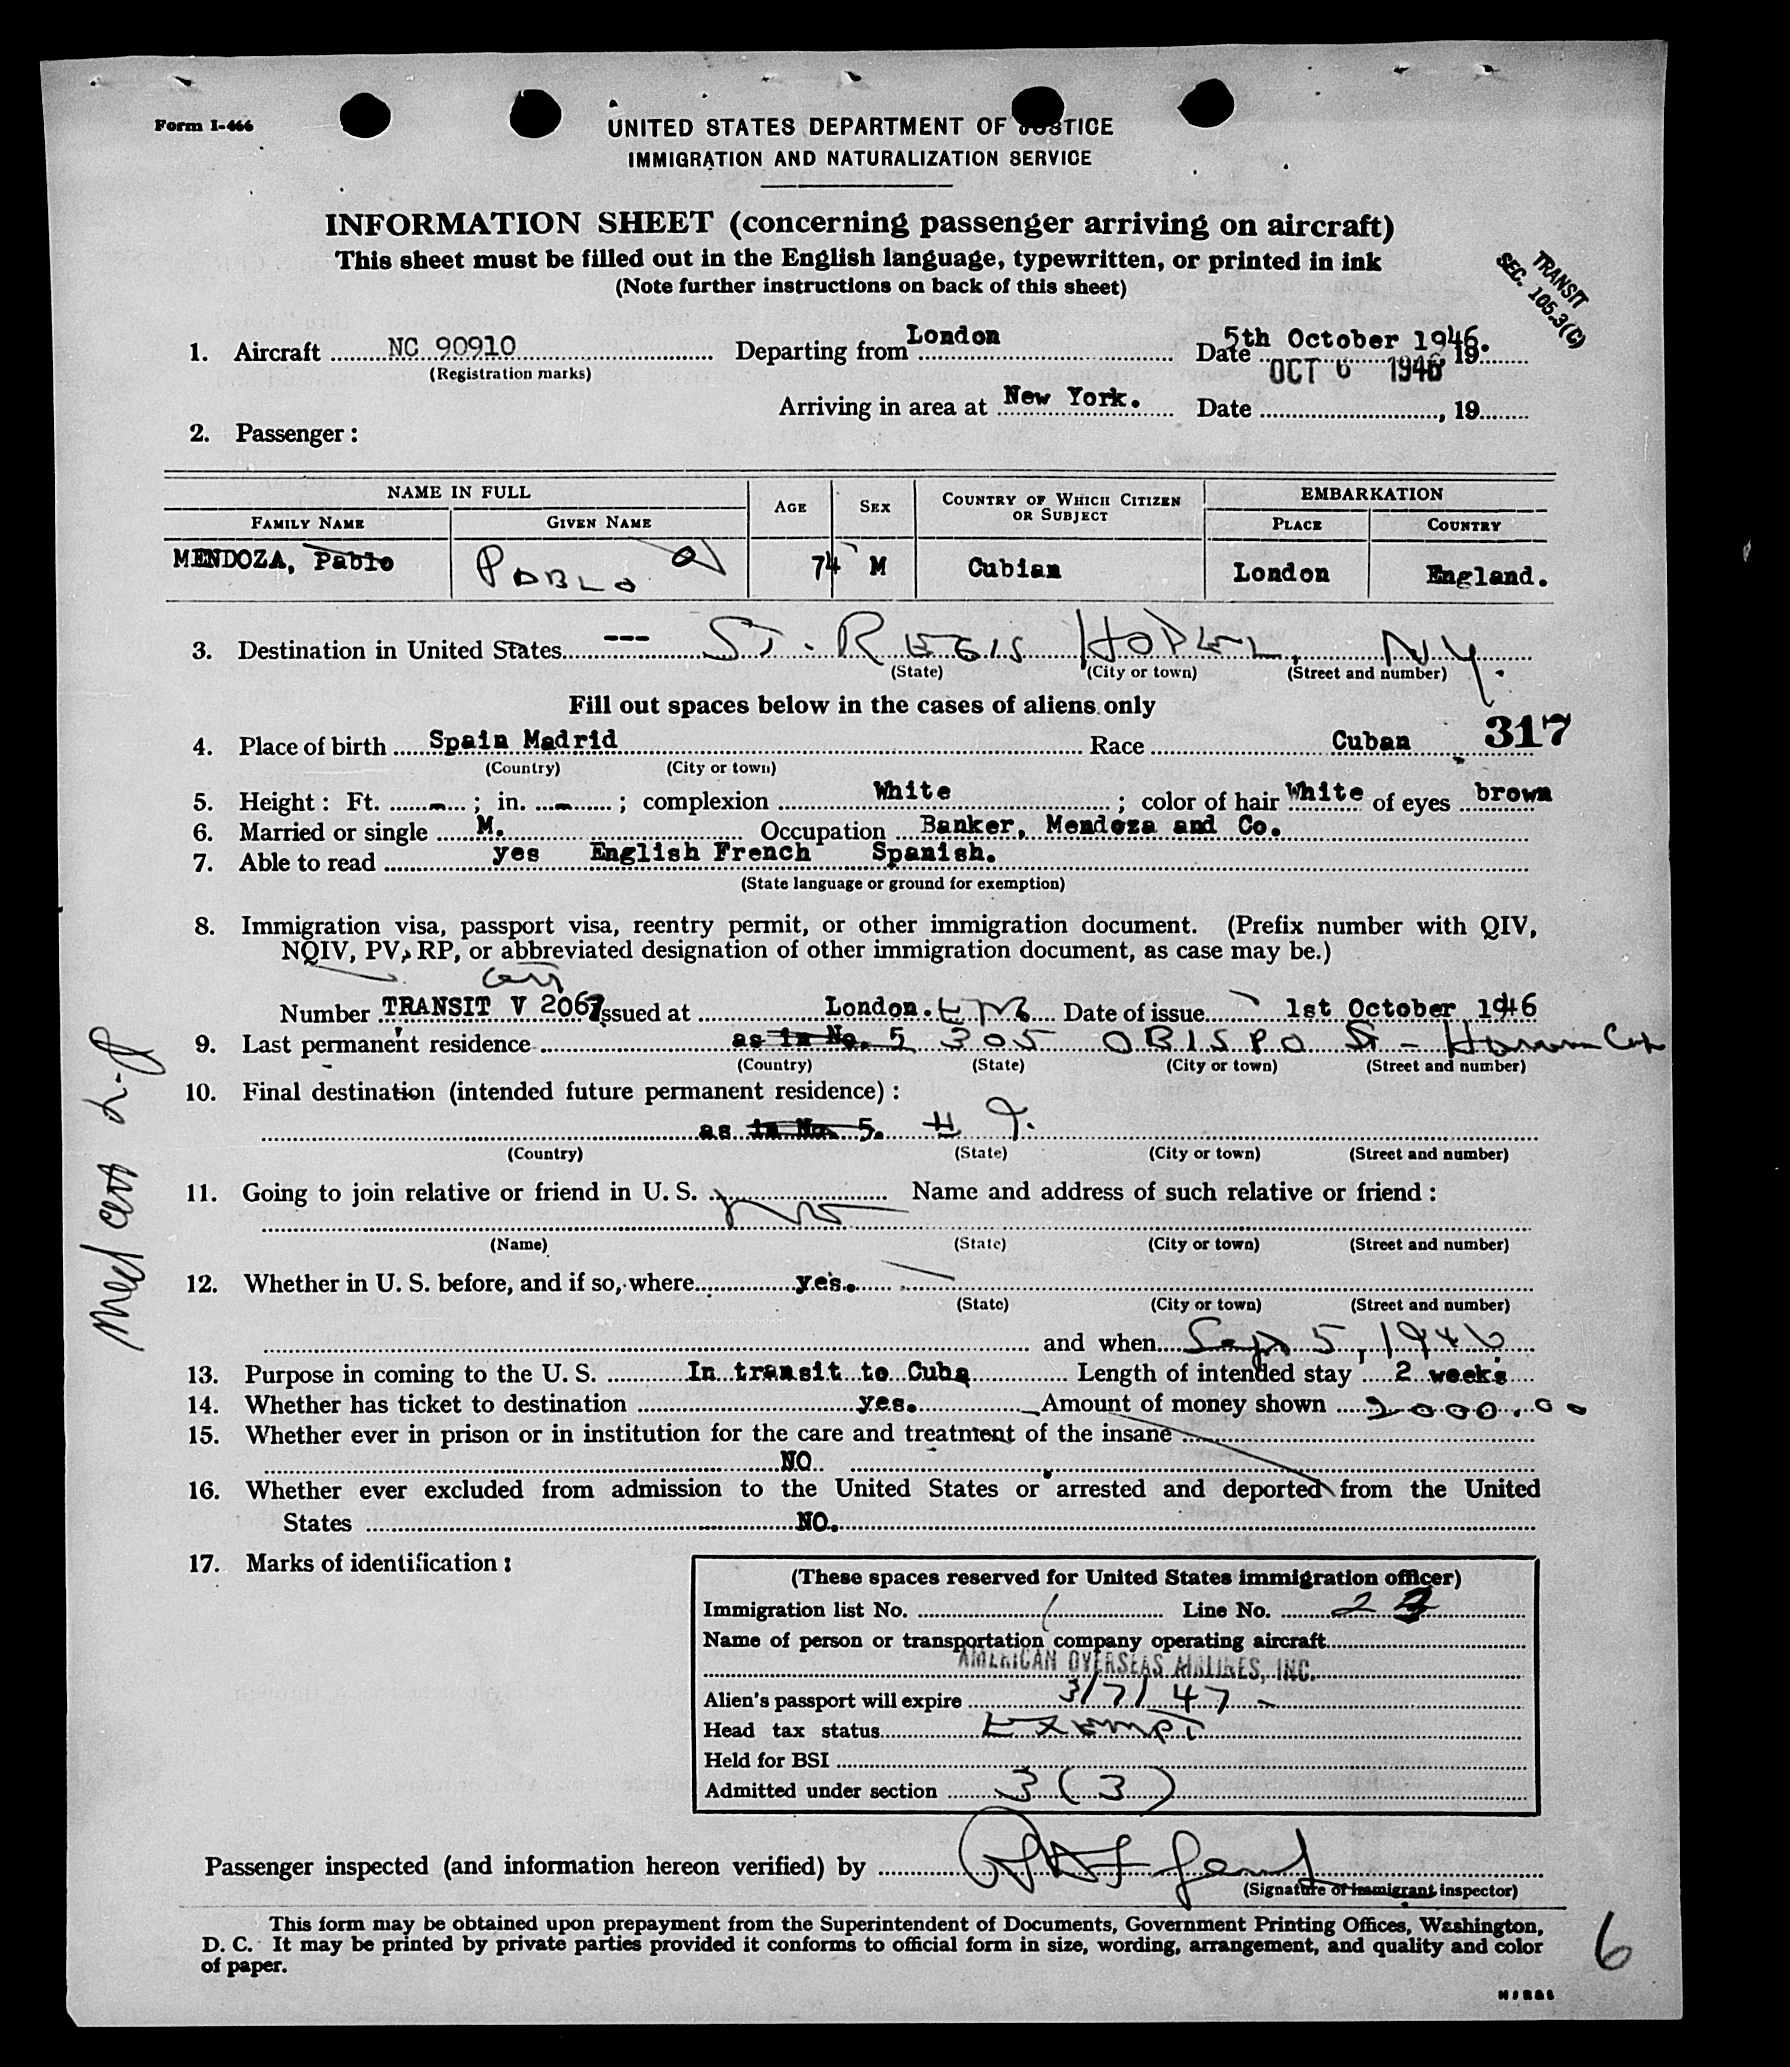 Form I-466
UNITED STATES DEPARTMENT OF JUSTICE
IMMIGRATION AND NATURALIZATION SERVICE
INFORMATION SHEET (concerning passenger arriving on aircraft)
This sheet must be filled out in the English language, typewritten, or printed in ink
(Note further instructions on back of this sheet)
TRANSIT
SEC. 105.3(C)
1. Aircraft NC 90910 Departing from London Date 5th October 1946. 19
(Registration marks) OCT 6 1946
Arriving in area at New York. Date , 19
2. Passenger:
NAME IN FULL AGE SEX COUNTRY OF WHICH CITIZEN OR SUBJECT EMBARKATION
FAMILY NAME GIVEN NAME PLACE COUNTRY
MENDOZA, Pablo PABLO 74 M Cubian London England.
3. Destination in United States --- ST. REGIS HOTEL, NY.
(State) (City or town) (Street and number)
Fill out spaces below in the cases of aliens only
317
4. Place of birth Spain Madrid Race Cuban
(Country) (City or town)
5. Height: Ft. - ; in. - ; complexion White ; color of hair White of eyes brown
6. Married or single M. Occupation Banker, Mendoza and Co.
7. Able to read yes English French Spanish.
(State language or ground for exemption)
8. Immigration visa, passport visa, reentry permit, or other immigration document. (Prefix number with QIV,
NQIV, PV, RP, or abbreviated designation of other immigration document, as case may be.)
Cert
Number TRANSIT V 2067 Issued at London. Date of issue 1st October 1946
9. Last permanent residence as in No. 5 305 OBISPO St - Havana Cuba
(Country) (State) (City or town) (Street and number)
10. Final destination (intended future permanent residence):
as in No. 5. # 9.
(Country) (State) (City or town) (Street and number)
11. Going to join relative or friend in U. S. No Name and address of such relative or friend:
(Name) (State) (City or town) (Street and number)
12. Whether in U. S. before, and if so, where yes.
(State) (City or town) (Street and number)
and when Sept 5, 1946
13. Purpose in coming to the U. S. In transit to Cuba Length of intended stay 2 weeks
14. Whether has ticket to destination yes. Amount of money shown 2000.00
15. Whether ever in prison or in institution for the care and treatment of the insane
NO
16. Whether ever excluded from admission to the United States or arrested and deported from the United
States NO.
17. Marks of identification:
(These spaces reserved for United States immigration officer)
Immigration list No. 1 Line No. 2
Name of person or transportation company operating aircraft
AMERICAN OVERSEAS AIRLINES, INC.
Alien's passport will expire 3/7/47
Head tax status Exempt
Held for BSI
Admitted under section 3(3)
Passenger inspected (and information hereon verified) by
(Signature of immigrant inspector)
This form may be obtained upon prepayment from the Superintendent of Documents, Government Printing Offices, Washington,
D. C. It may be printed by private parties provided it conforms to official form in size, wording, arrangement, and quality and color
of paper.
6
Med cert